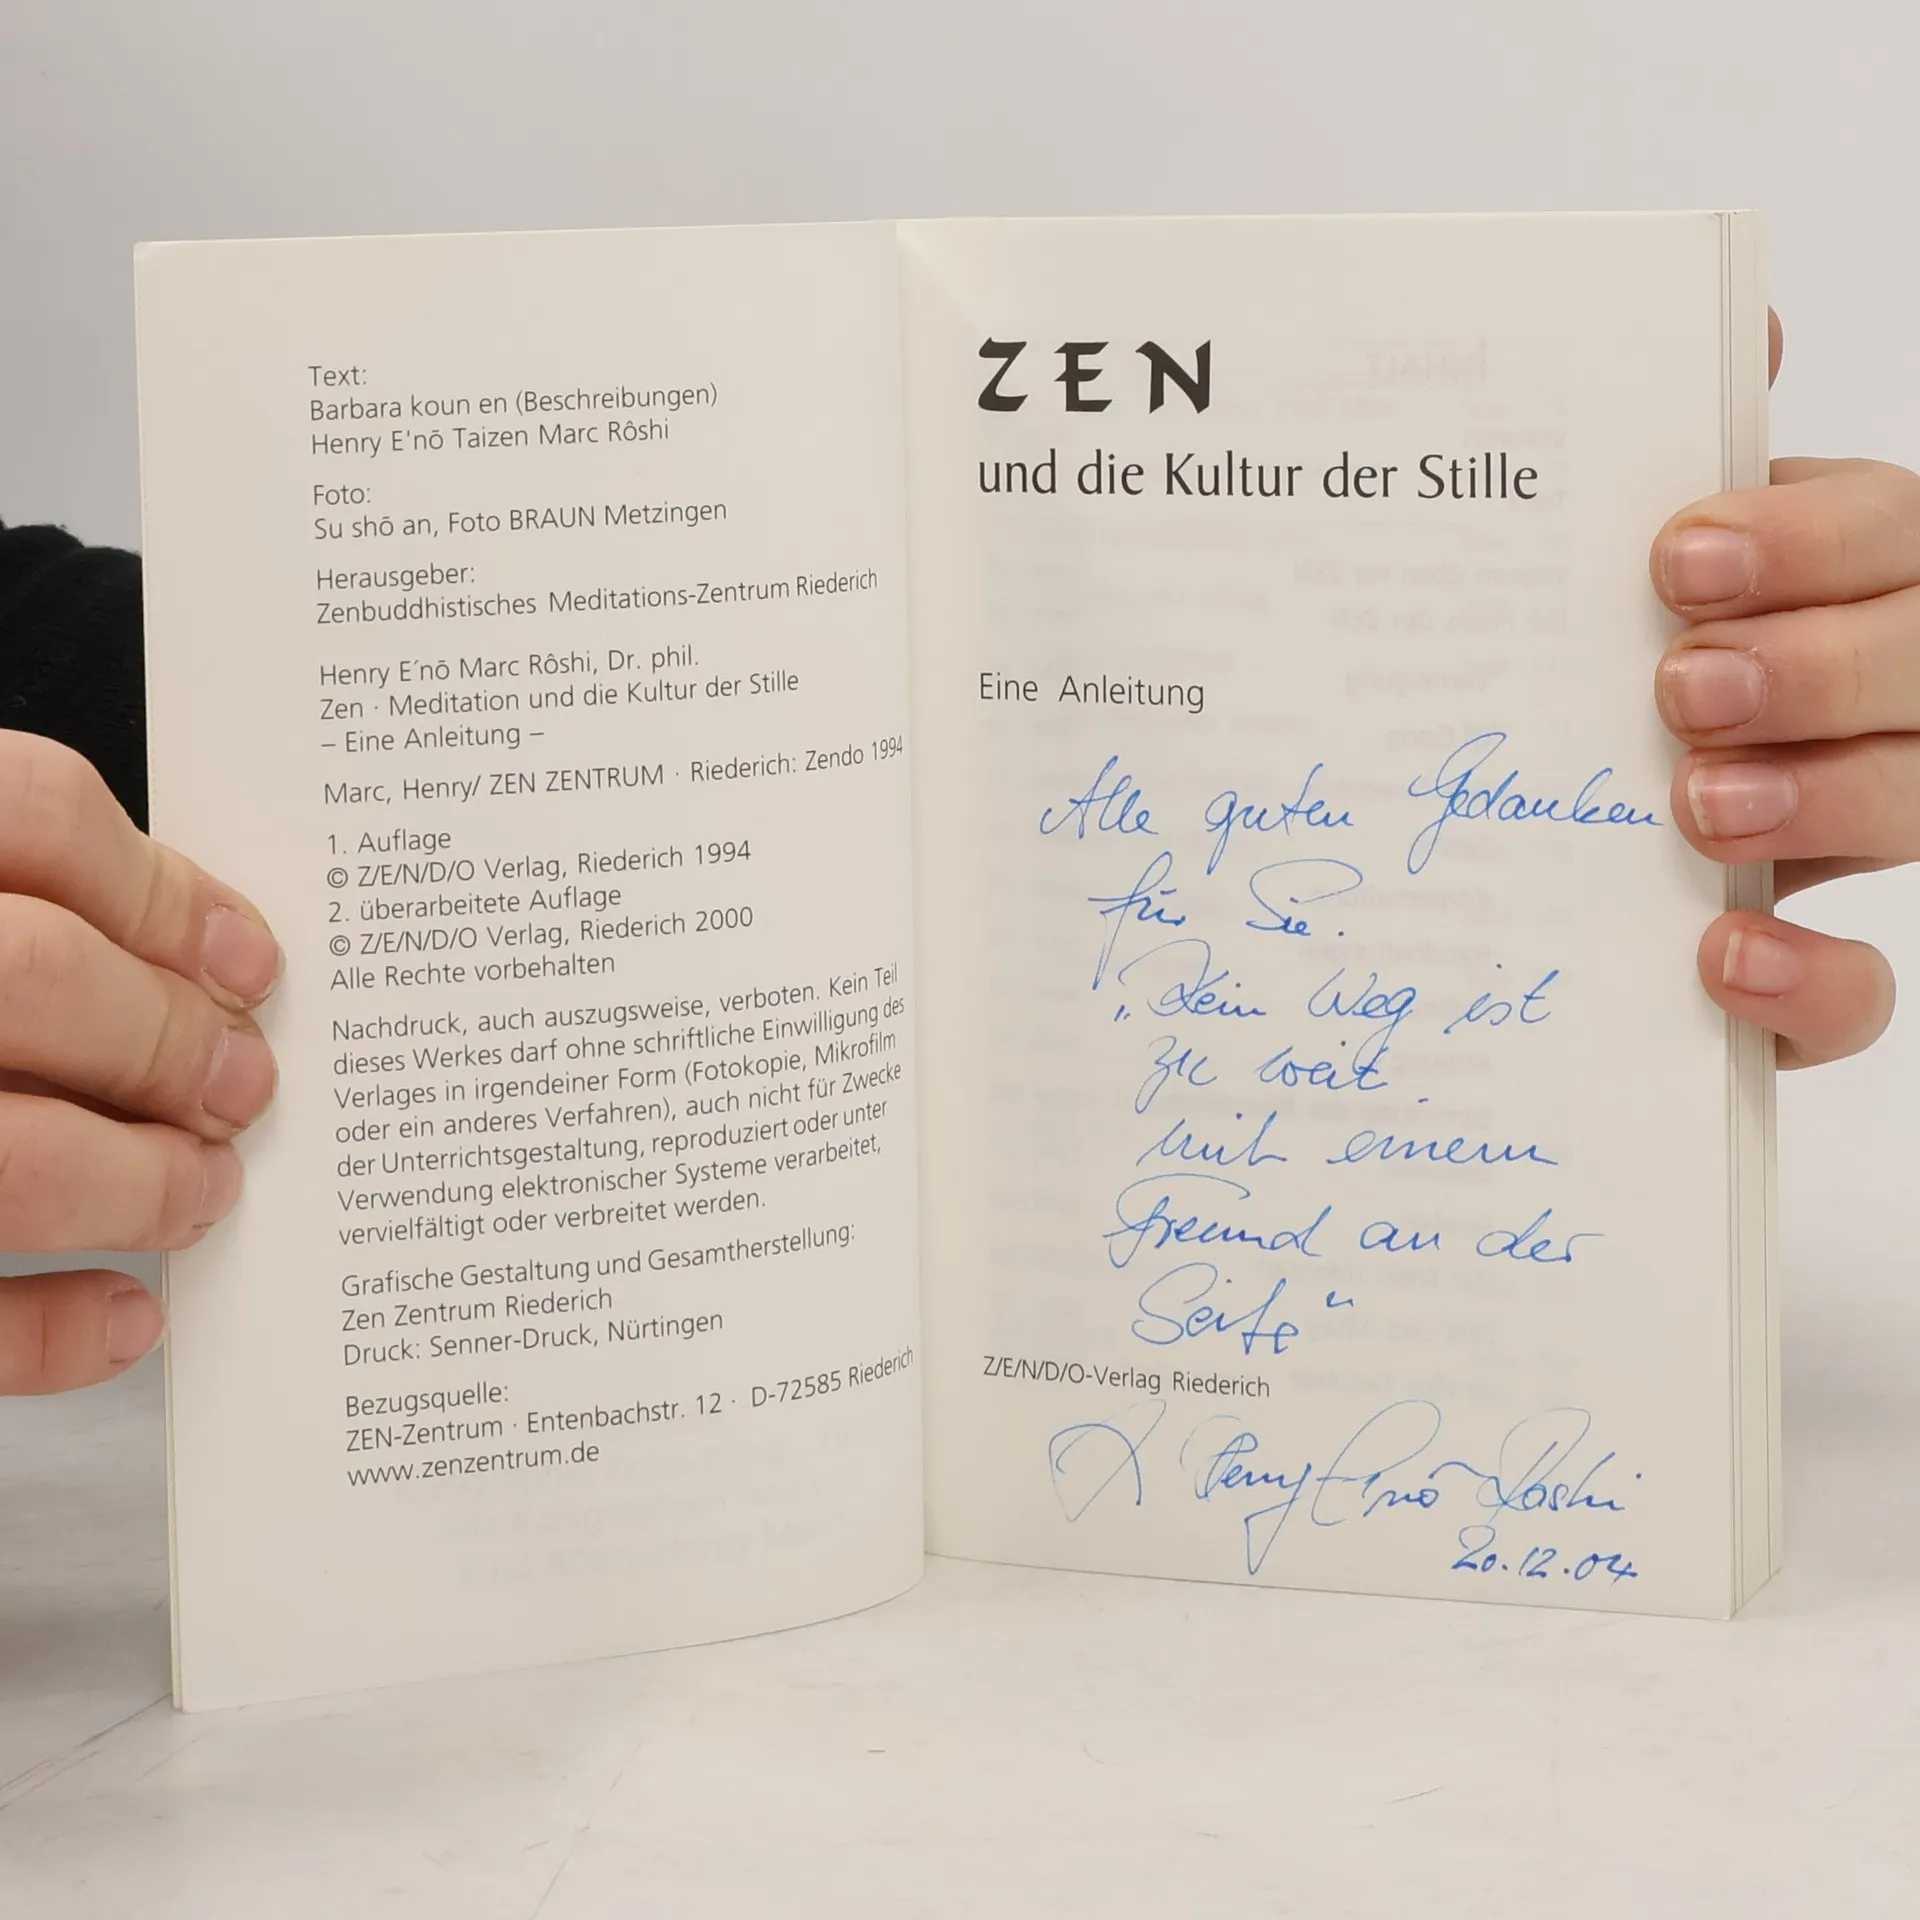 Text:
Barbara koun en (Beschreibungen)
Henry E'nō Taizen Marc Rôshi
Foto:
Su shō an, Foto BRAUN Metzingen
Herausgeber:
Zenbuddhistisches Meditations-Zentrum Riederich
Henry E´nō Marc Rôshi, Dr. phil.
Zen · Meditation und die Kultur der Stille
– Eine Anleitung –
Marc, Henry/ ZEN ZENTRUM · Riederich: Zendo 1994
1. Auflage
© Z/E/N/D/O Verlag, Riederich 1994
2. überarbeitete Auflage
© Z/E/N/D/O Verlag, Riederich 2000
Alle Rechte vorbehalten
Nachdruck, auch auszugsweise, verboten. Kein Teil
dieses Werkes darf ohne schriftliche Einwilligung des
Verlages in irgendeiner Form (Fotokopie, Mikrofilm
oder ein anderes Verfahren), auch nicht für Zwecke
der Unterrichtsgestaltung, reproduziert oder unter
Verwendung elektronischer Systeme verarbeitet,
vervielfältigt oder verbreitet werden.
Grafische Gestaltung und Gesamtherstellung:
Zen Zentrum Riederich
Druck: Senner-Druck, Nürtingen
Bezugsquelle:
ZEN-Zentrum · Entenbachstr. 12 · D-72585 Riederich
www.zenzentrum.de
ZEN
und die Kultur der Stille
Eine Anleitung
Alle guten Gedanken
für Sie.
„Kein Weg ist
zu weit
mit einem
Freund an der
Seite“
Z/E/N/D/O-Verlag Riederich
Henry Enō Roshi
20.12.04